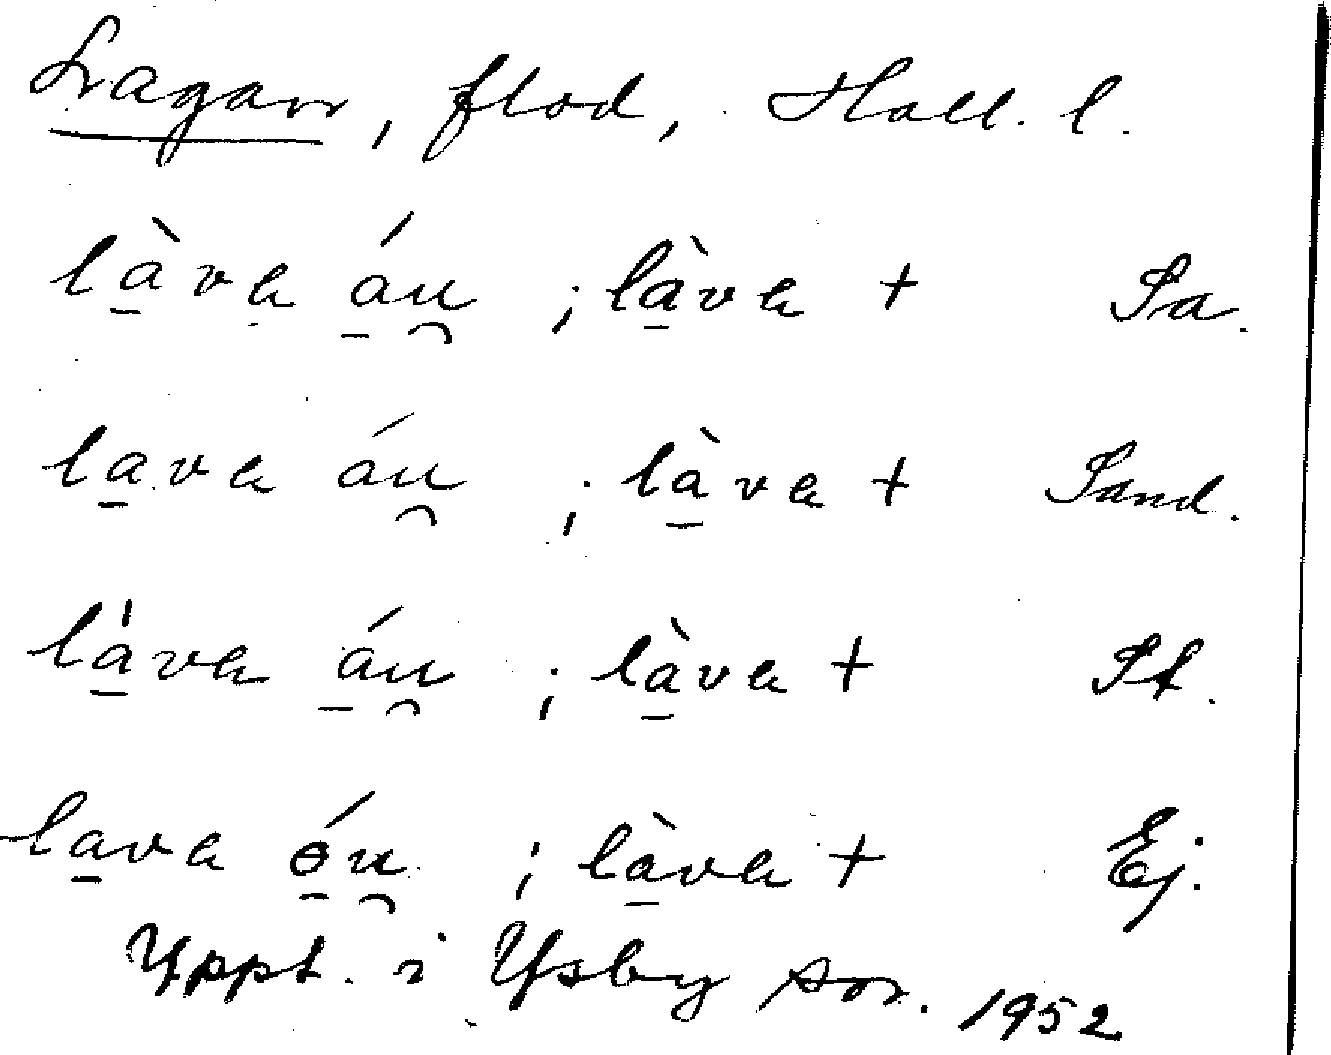 Lagan, flod, Hall. l.
là̱va á̱u̯ ; là̱va + Sa.
la̱va áu̯ ; là̱va + Sand.
la̱̍va á̱u̯ ; là̱va + St.
la̱va ó̱u̯ ; là̱va + Ej.
Uppt. i Ysby sn. 1952